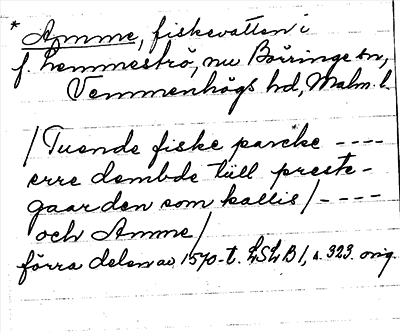 * Amme, fiskevatten i
f. Lemmeströ, nu Börringe sn,
Vemmenhögs hd, Malm. l.
/Tuende fiske parcke ----
erre dembde till preste-
gaarden som kallis/----
och Amme/
förra delen av 1570-t. LSLB1, s. 323. orig.